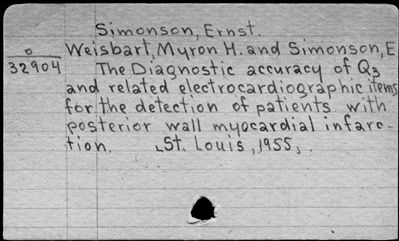 Simonson, Ernst.
o Weisbart, Myron H. and Simonson, E
32904 The Diagnostic accuracy of Q3
and related electrocardiographic items
for the detection of patients with
posterior wall myocardial infarc-
tion. St. Louis, 1955.